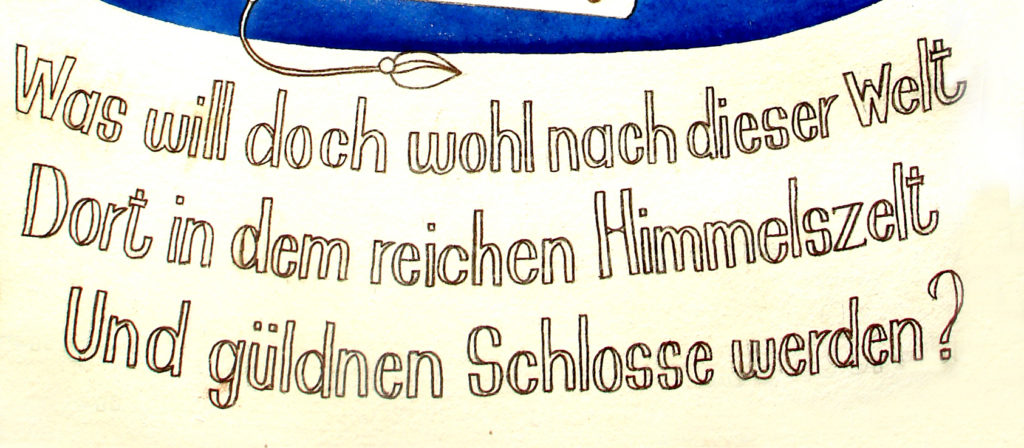 Was will doch wohl nach dieser Welt
Dort in dem reichen Himmelszelt
Und güldnen Schlosse werden?